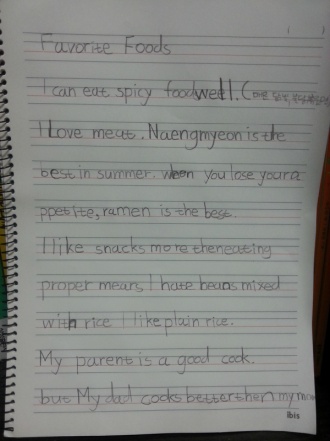 Favorite Foods
I can eat spicy food well. (
I Love meat. Naengmyeon is the
best in summer. when you lose your a
ppetite, ramen is the best.
I like snacks more then eating
proper mears, I hate beans mixed
with rice I like plain rice.
My parent is a good cook.
but My dad cocks better then my mom
ibis